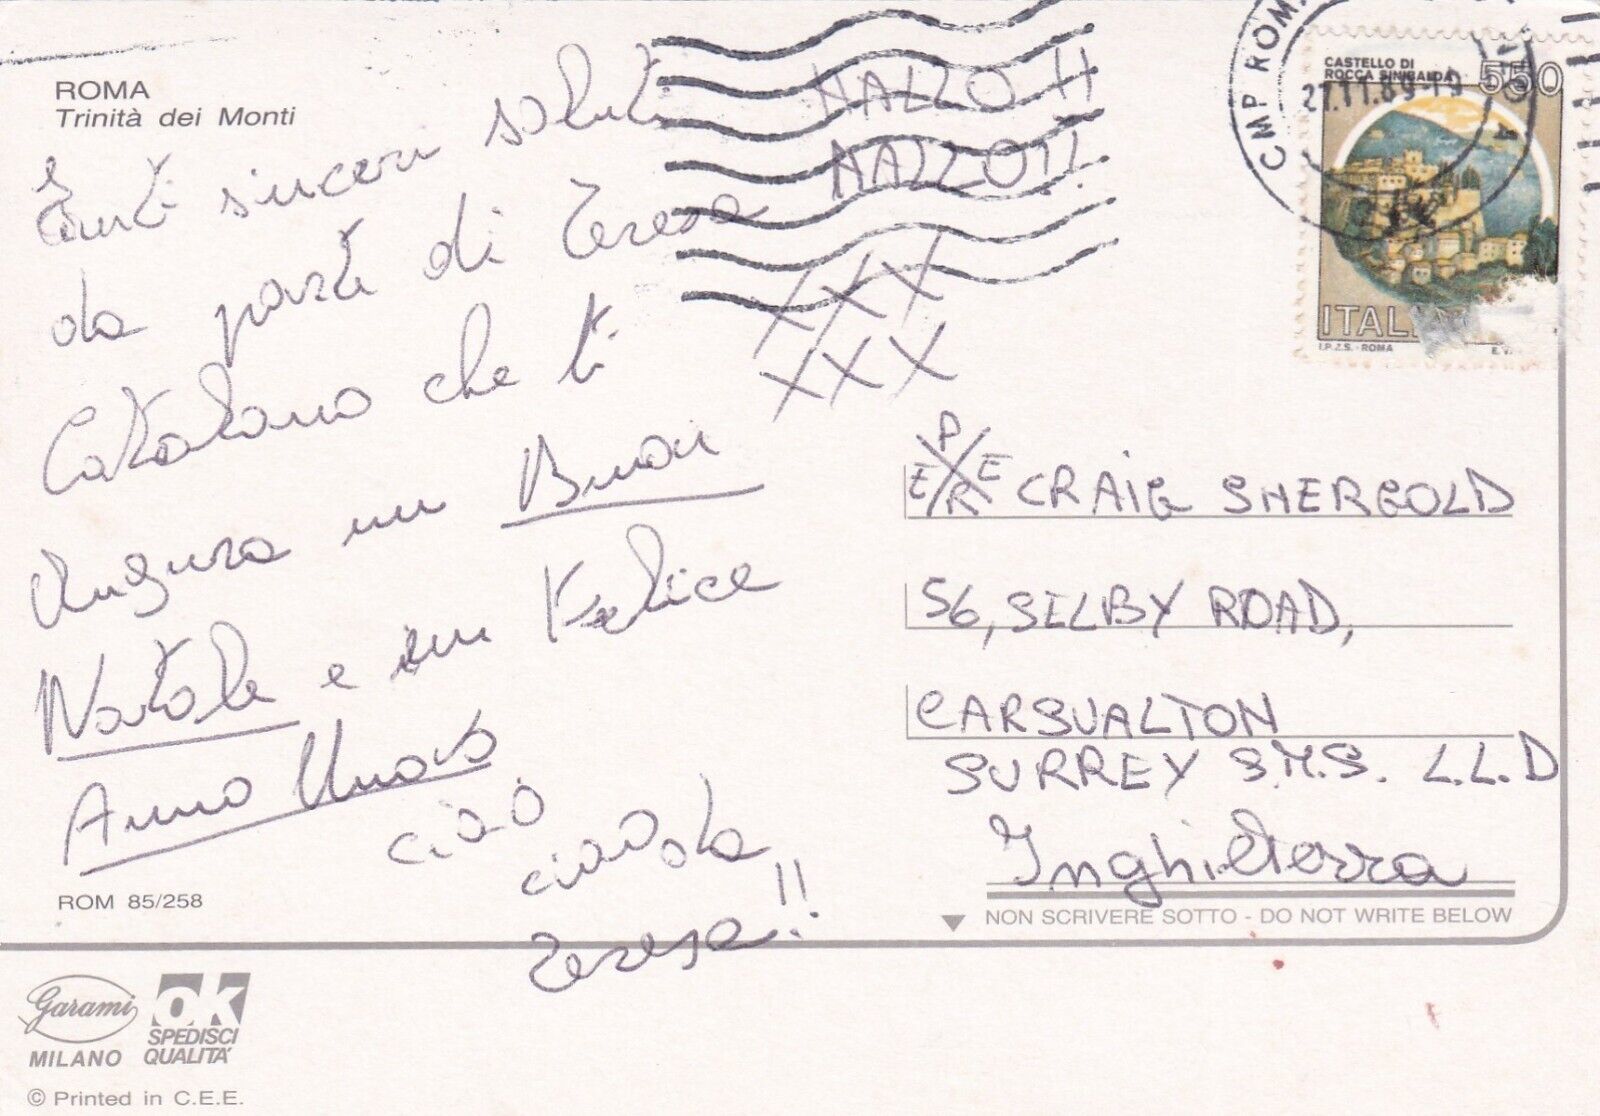 ROMA
Trinità dei Monti
Tanti sinceri saluti
da parte di Teresa
Catalano che ti
Augura un Buon
Natale e un Felice
Anno Nuovo
ciao.
ciao da
Teresa!!
NAZZO!!
NAZZO!!
XXX
XXX
ROM 85/258
Garami
MILANO
OK
SPEDISCI
QUALITA'
© Printed in C.E.E.
CMP ROMA
27.11.89-19
CASTELLO DI
ROCCA SINIBALDA
550
ITALIA
I.P.Z.S. - ROMA
PER
CRAIG SHERGOLD
56, SELBY ROAD,
CARSUALTON
SURREY S.M.S. L.L.D
Inghilterra
NON SCRIVERE SOTTO - DO NOT WRITE BELOW